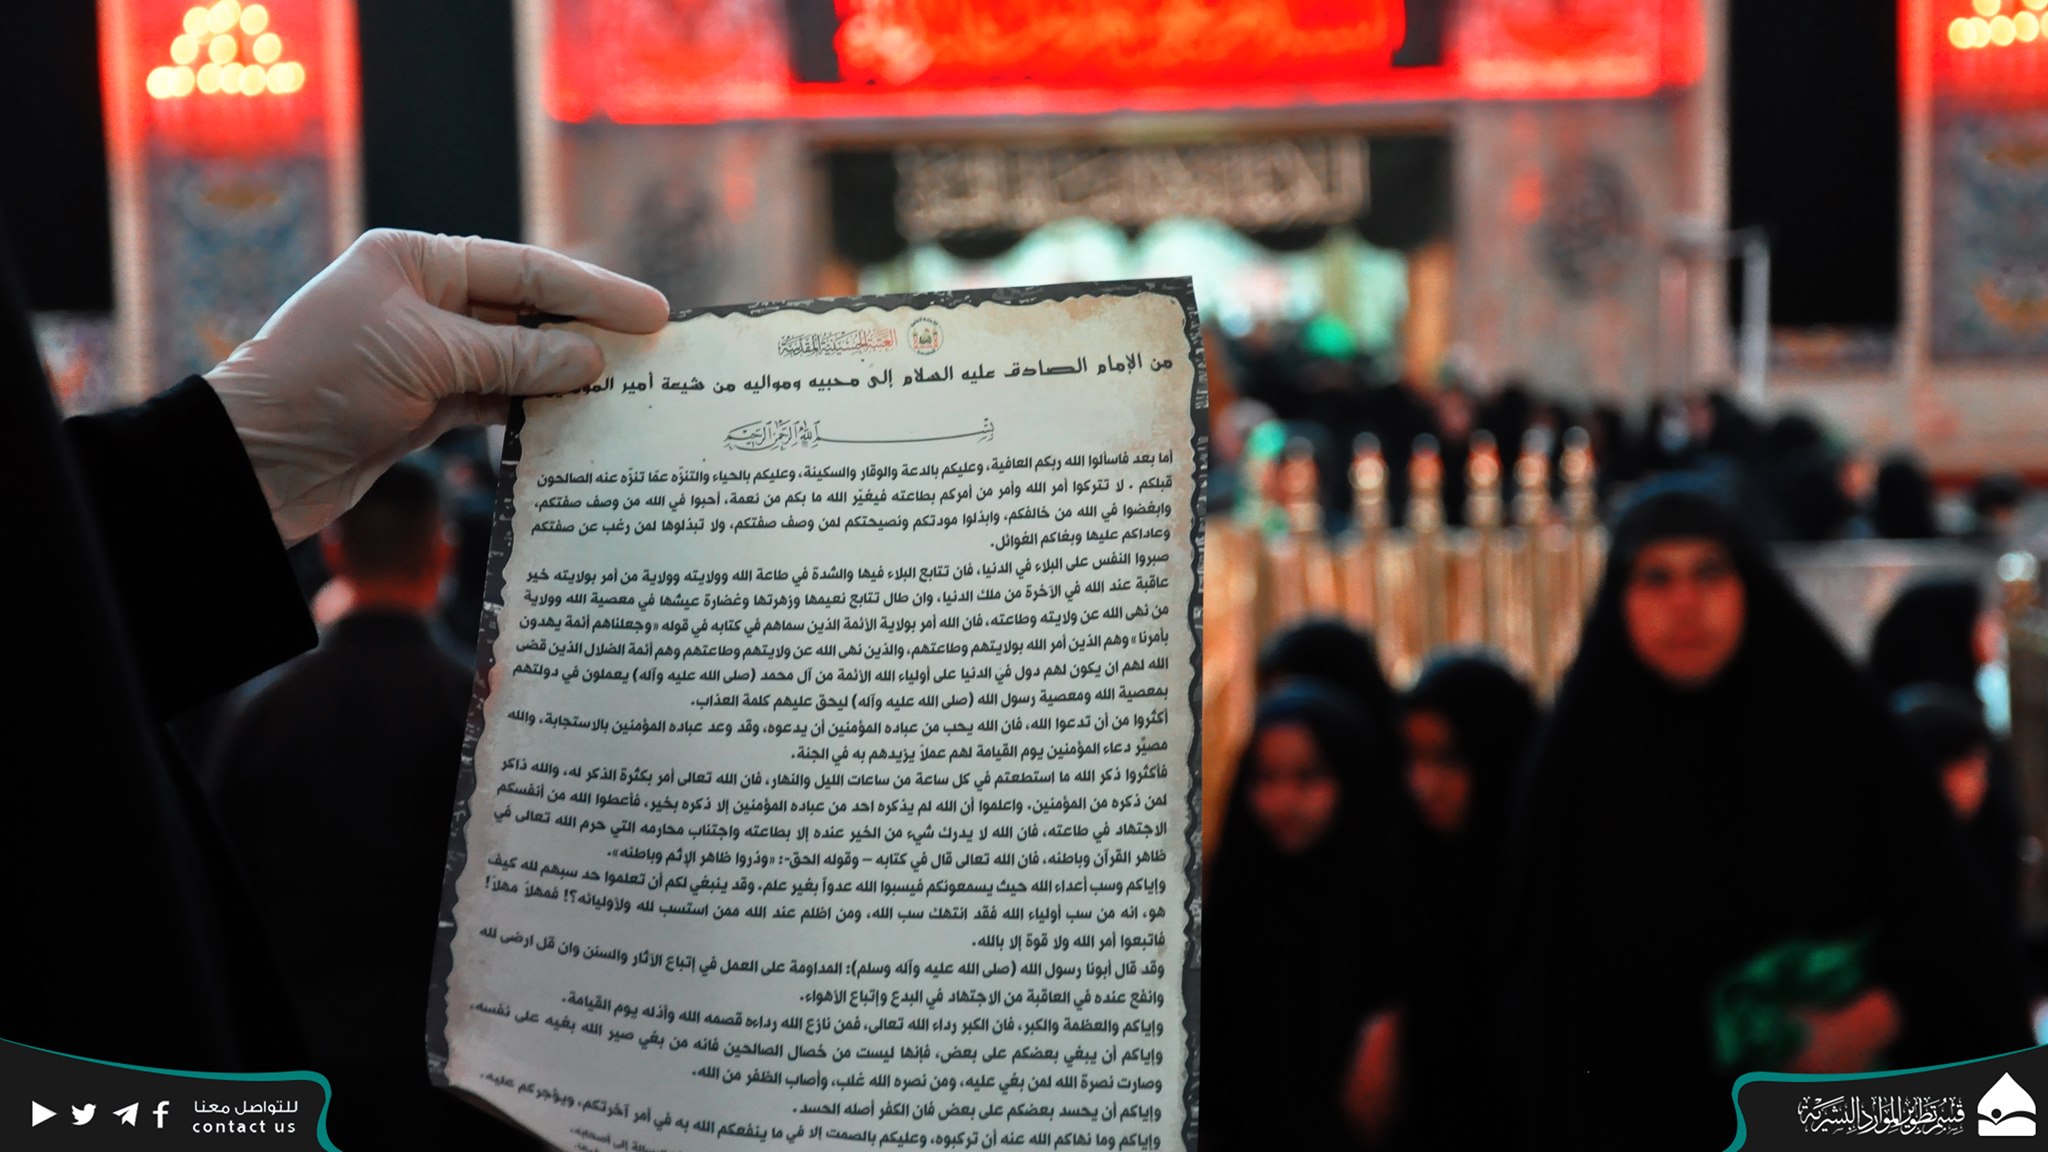 العتبة الحسينية المقدسة
من الإمام الصادق عليه السلام إلى محبيه ومواليه من شيعة أمير
بسم الله الرحمن الرحيم
أما بعد فاسألوا الله ربكم العافية، وعليكم بالدعة والوقار والسكينة، وعليكم بالحياء والتنزّه عمّا تنزّه عنه الصالحون
قبلكم . لا تتركوا أمر الله وأمر من أمركم بطاعته فيغيّر الله ما بكم من نعمة، أحبوا في الله من وصف صفتكم،
وابغضوا في الله من خالفكم، وابذلوا مودتكم ونصيحتكم لمن وصف صفتكم، ولا تبذلوها لمن رغب عن صفتكم
وعاداكم عليها وبغاكم الغوائل.
صبروا النفس على البلاء في الدنيا، فان تتابع البلاء فيها والشدة في طاعة الله وولايته وولاية من أمر بولايته خير
عاقبة عند الله في الآخرة من ملك الدنيا، وان طال تتابع نعيمها وزهرتها وغضارة عيشها في معصية الله وولاية
من نهى الله عن ولايته وطاعته، فان الله أمر بولاية الأئمة الذين سماهم في كتابه في قوله «وجعلناهم أئمة يهدون
بأمرنا» وهم الذين أمر الله بولايتهم وطاعتهم، والذين نهى الله عن ولايتهم وطاعتهم وهم أئمة الضلال الذين قضى
الله لهم ان يكون لهم دول في الدنيا على أولياء الله الأئمة من آل محمد (صلى الله عليه وآله) يعملون في دولتهم
بمعصية الله ومعصية رسول الله (صلى الله عليه وآله) ليحق عليهم كلمة العذاب.
أكثروا من أن تدعوا الله، فان الله يحب من عباده المؤمنين أن يدعوه، وقد وعد عباده المؤمنين بالاستجابة، والله
مصيّر دعاء المؤمنين يوم القيامة لهم عملاً يزيدهم به في الجنة.
فأكثروا ذكر الله ما استطعتم في كل ساعة من ساعات الليل والنهار، فان الله تعالى أمر بكثرة الذكر له، والله ذاكر
لمن ذكره من المؤمنين. واعلموا أن الله لم يذكره احد من عباده المؤمنين إلا ذكره بخير، فأعطوا الله من أنفسكم
الاجتهاد في طاعته، فان الله لا يدرك شيء من الخير عنده إلا بطاعته واجتناب محارمه التي حرم الله تعالى في
ظاهر القرآن وباطنه، فان الله تعالى قال في كتابه – وقوله الحق-: «وذروا ظاهر الإثم وباطنه».
وإياكم وسب أعداء الله حيث يسمعونكم فيسبوا الله عدواً بغير علم. وقد ينبغي لكم أن تعلموا حد سبهم لله كيف
هو، انه من سب أولياء الله فقد انتهك سب الله، ومن اظلم عند الله ممن استسب لله ولأوليائه؟! فمهلاً مهلاً!
فاتبعوا أمر الله ولا قوة إلا بالله.
وقد قال أبونا رسول الله (صلى الله عليه وآله وسلم): المداومة على العمل في إتباع الآثار والسنن وان قل ارضى لله
وانفع عنده في العاقبة من الاجتهاد في البدع وإتباع الأهواء.
وإياكم والعظمة والكبر، فان الكبر رداء الله تعالى، فمن نازع الله رداءه قصمه الله وأذله يوم القيامة.
وإياكم أن يبغي بعضكم على بعض، فإنها ليست من خصال الصالحين فانه من بغي صير الله بغيه على نفسه.
وصارت نصرة الله لمن بغي عليه، ومن نصره الله غلب، وأصاب الظفر من الله.
وإياكم أن يحسد بعضكم على بعض فان الكفر أصله الحسد.
وإياكم وما نهاكم الله عنه أن تركبوه، وعليكم بالصمت إلا في ما ينفعكم الله به في أمر آخرتكم، ويؤجركم عليه.
للتواصل معنا
contact us
قسم تطوير الموارد البشرية